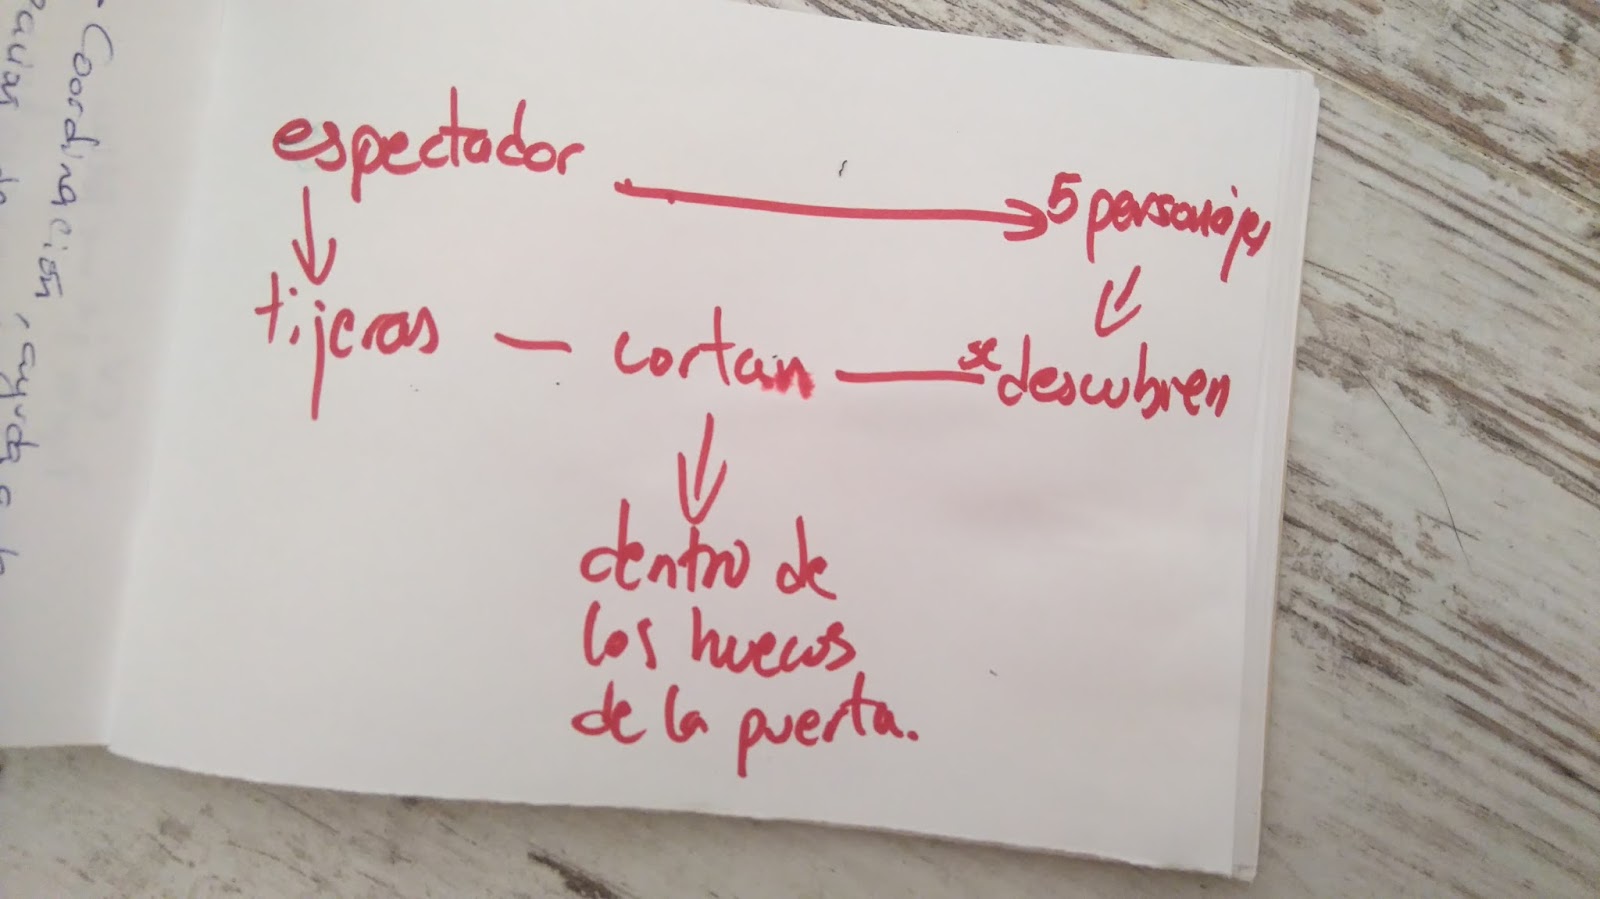 - Coordinación, ayuda a la
espectador
5 personajes
tijeras — cortan — se descubren
dentro de
los huecos
de la puerta.